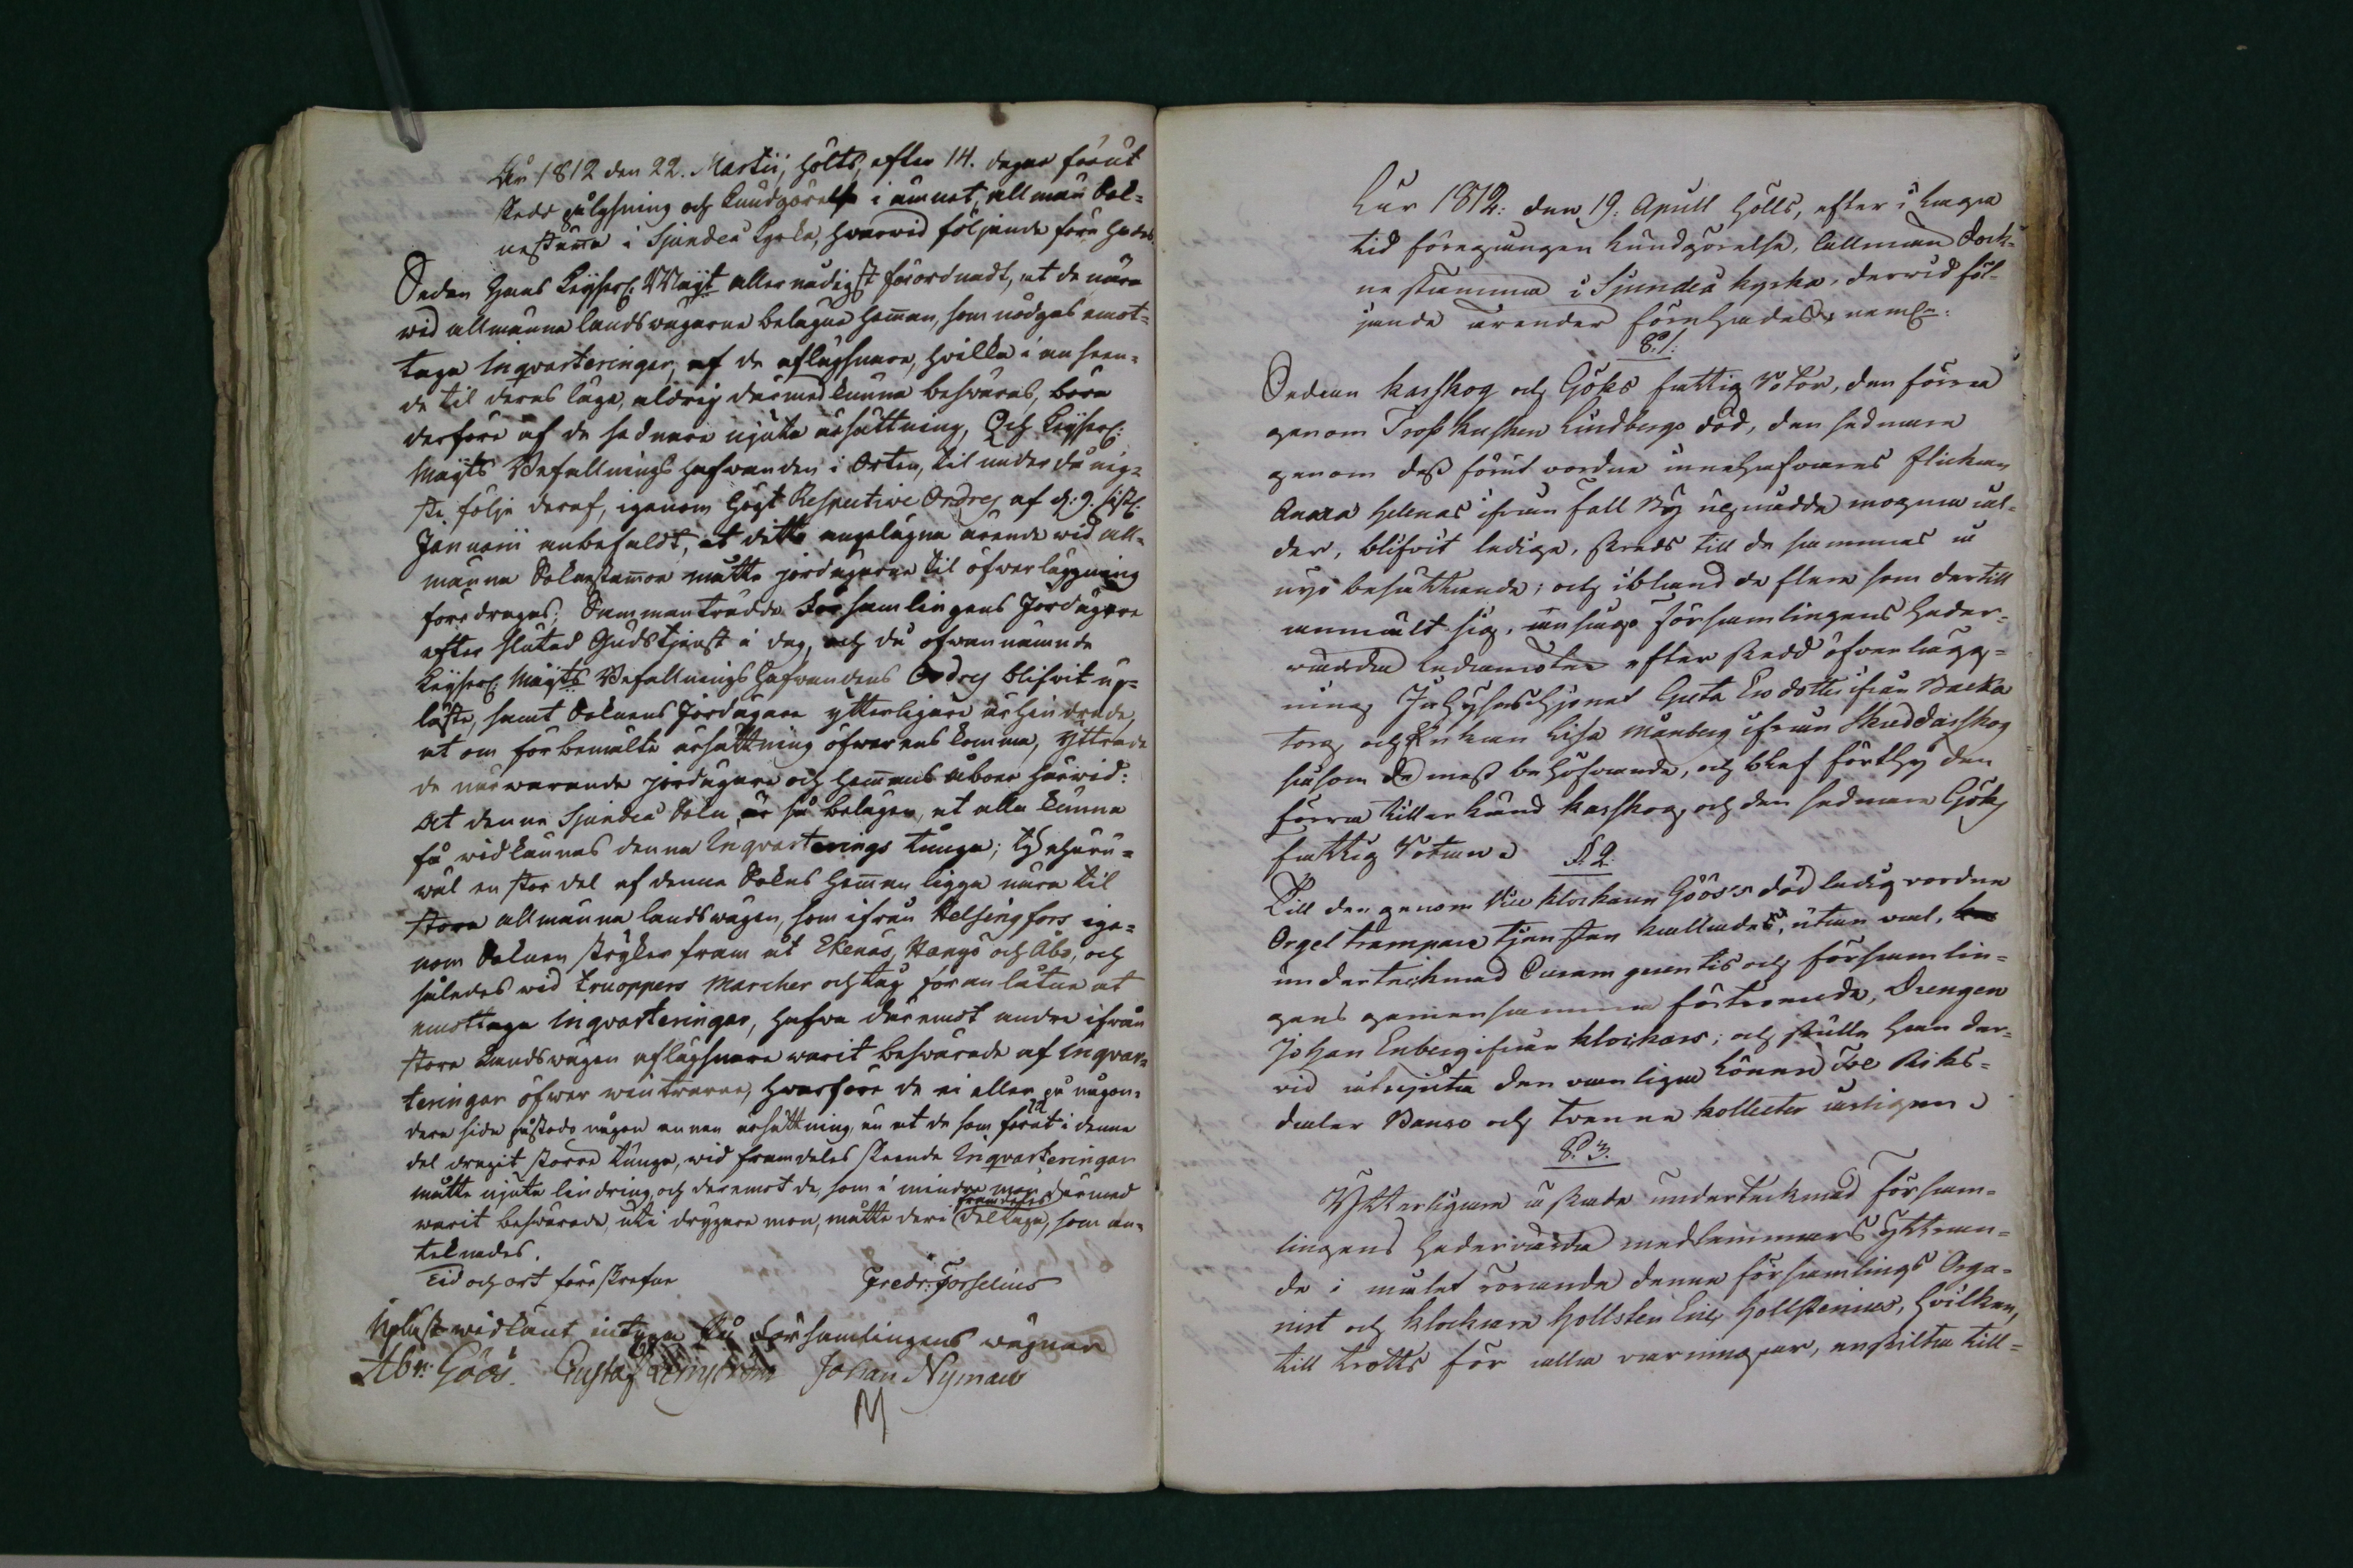 År 1812 den 22. Martii, hölts, efter 14. dagar förut
skedd pålysning och kundgörelse i ämnet, allmän Sok=
nestämma i Sjundeå Kyrka, hwarwid följande före hades.
Sedan Hans Keijserl: Majt allernådigst förordnadt, at de nära
wid allmänna landswägarne belägne Heman, som nödgas emot=
taga Inqvarteringar, af de aflägsnare, hvilka i anseen=
de til deras läge, aldrig därmed kunna besväras, böra
derföre af de sednare njuta ersättning, Och Keijserl:
Majts Befallningshafwanden i Orten, til underdånig=
ste följe deraf, igenom Högt Respective Ordres af d: 9. sistl:
Januarii anbefaldt, at detta angelägna ärende wid all=
männa Soknestämor måtte jordägarne til öfwerläggning
föredragas; Sammanträdde Församlingens Jordägare
efter slutad Gudstjenst i dag, och då ofwannämnde
Keijserl: Majts Befallningshafwandens Ordres blifvit up=
läste, samt Soknens Jordägare ytterligare
at om förbemälte ersättning öfwerenskomma, yttrade
de närwarande jordägare och Hemans åboer härwid:
At denna Sjundeå Sokn är så belägen, at alla kunna
få widkännas denna Inqvarterings tunga; ty ehuru=
wäl en stor del af denna Sokns Heman ligga nära til
stora allmänna landswägen, som ifrån Helsingfors ige=
nom Soknen stryker fram åt Ekenäs, Hangö och Åbo, och
således wid trouppers Marcher och tåg föranlåtne at
emottaga Inqvarteringar, hafwa däremot andre ifrån
stora Landswägen aflägsnare warit beswärade af Inqvar=
teringar öfwer wintrarne, hwarföre de ei eller på någon=
dera sida påstodo någon annan ersättning, än at de som förut i denne
del dragit större tunga, wid framdeles skeende Inqvarteringar
måtte njuta lindring, och deremot de, som i mindre mon därmed
warit beswärade, uti drygare mon, måtte deri framdeles deltaga, som an=
teknades.
Tid och ort föreskrefne
Fredr: Forselius
Upläst widkänt intyga på Församlingens wägnar
Abr: Göös. Gustaf Johan Nyman
År 1812: den 19. Aprill hölls, efter i laga
tid föregången kundgörelse, allmän Sock=
nestämma i Sjundeå kyrka, derwid föl=
jande ärender förehades, neml:
§. 1.
Sedan Karskog och Göks fattig Rotar, den förra
genom Tross Kusken Lindbergs död, den sednare
genom dess förut vordne innehafvares flickan
Anna Helenas ifrån Fall By uppnådde mogna ål=
der, blifvit lediga, skreds till de sammas å
nyo besättande; och ibland de flere som dertill
anmält sig, ansågo församlingens heder=
värda Ledamöter efter skedd öfverlägg=
ning Inhyseshjonet Greta Ersdotter ifrån Backa
torp och Enkan Lisa Månberg ifrån Skeddarskog
såsom de mest behöfvande, och blef förthy den
förra tillerkänd Karskog, och den sednare Göks
fattig Rotan. §. 2.
Till den genom Vice klockaren Göös's död ledig vordne
Orgeltrampare tjensten kallades nu, utan val,
undertecknad Curam gerentis och församlin=
gens gemensamma förtroende, Drengen
Johan Enberg ifrån klockars; och skulle han der=
vid åtnjuta den vanliga lönen Tre Riks=
daler Banco och tvenne kollecter årligen.
§. 3.
Ytterligare äskade undertecknad försam=
lingens hedervärda medlemmars yttran=
de i målet rörande denna församlings Orga=
nist och klockare Hollsten Eric Hollstenius, hvilken,
till trotts för alla varningar, enskilta till=